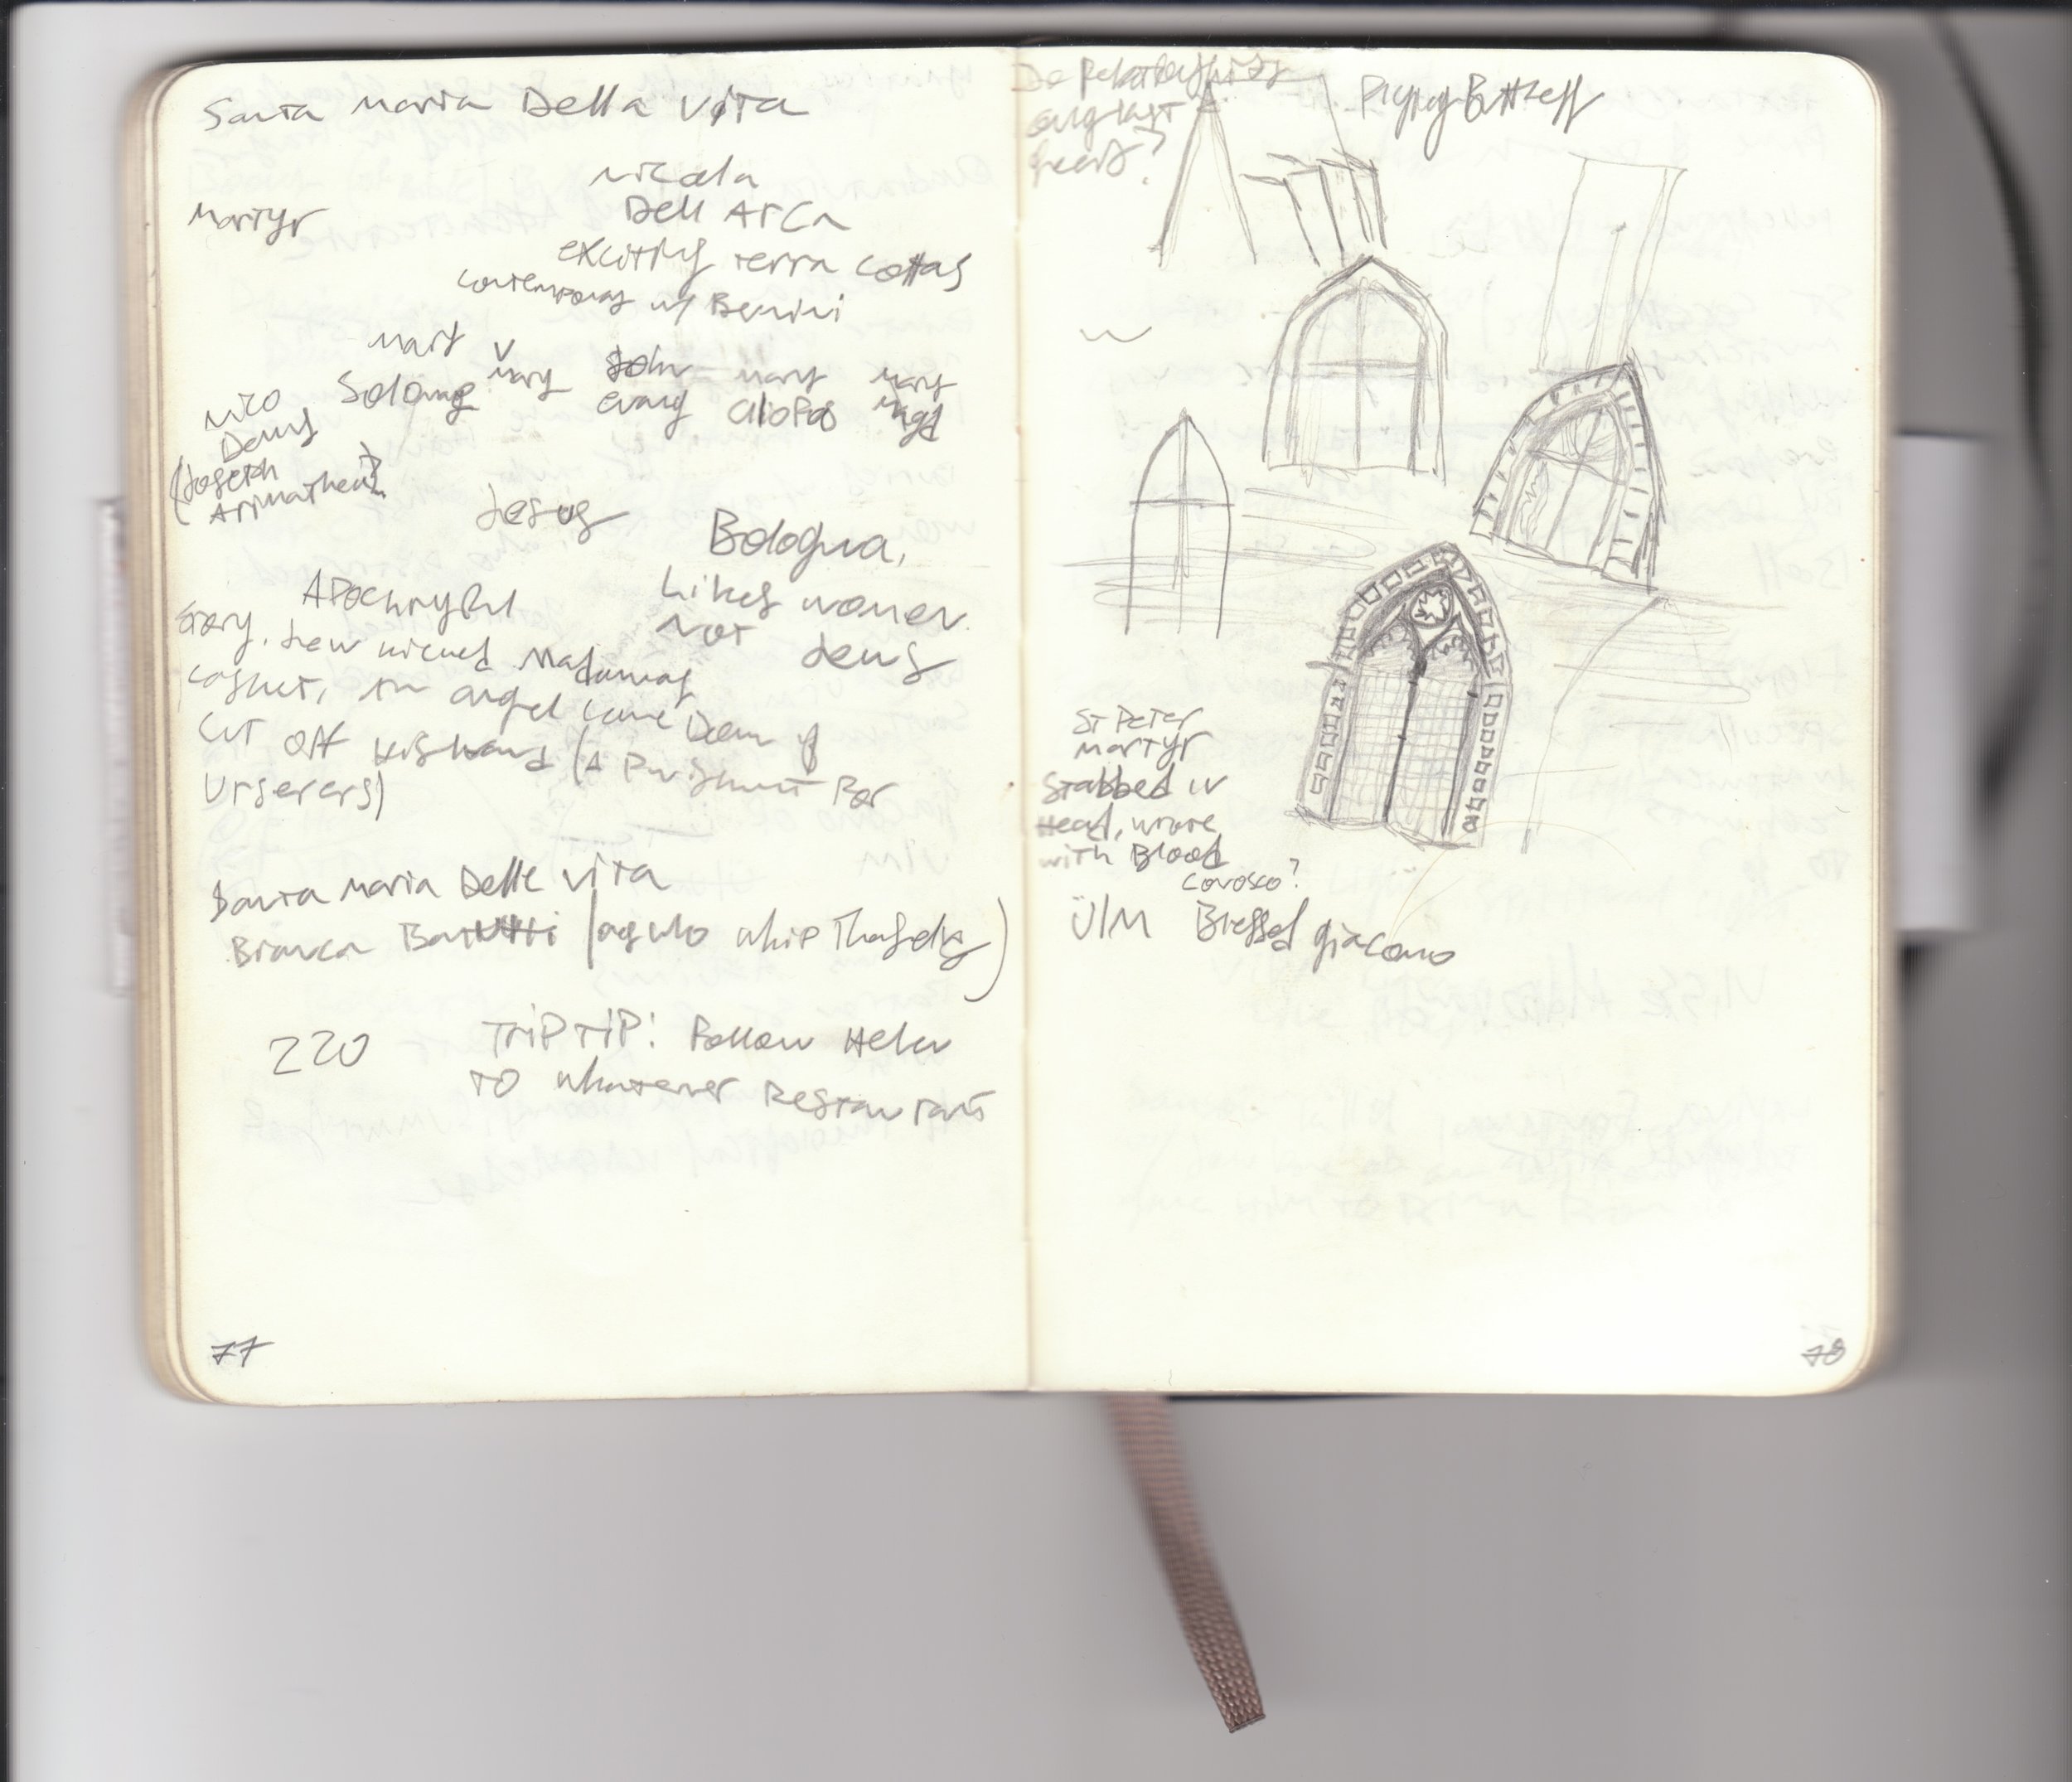 Santa Maria Della Vita
Nicola
Dell Arca
Martyr
exciting terra cottas
contemporary w/ Bernini
Mary
Salome
V
Mary
John
evang
Mary
Cliofas
Mary
Magd
Nico
Demus
(Joseph
Arimathea?)
Jesus
Bologna,
Likes women
Not Jews
Apochryphl
story. Jew kicked Madonnas
casket, an angel came Down &
cut off his hand (A punishment for
Usurers)
Santa Maria Delle Vita
Bianca (as who whip Thaselvs)
220
Trip Tip: Follow Helen
to whatever Restaurants
77
Do Relationships
St Peter
Martyr
Stabbed in
Head, wrote
with Blood
Ulm Blessed Giacomo
78